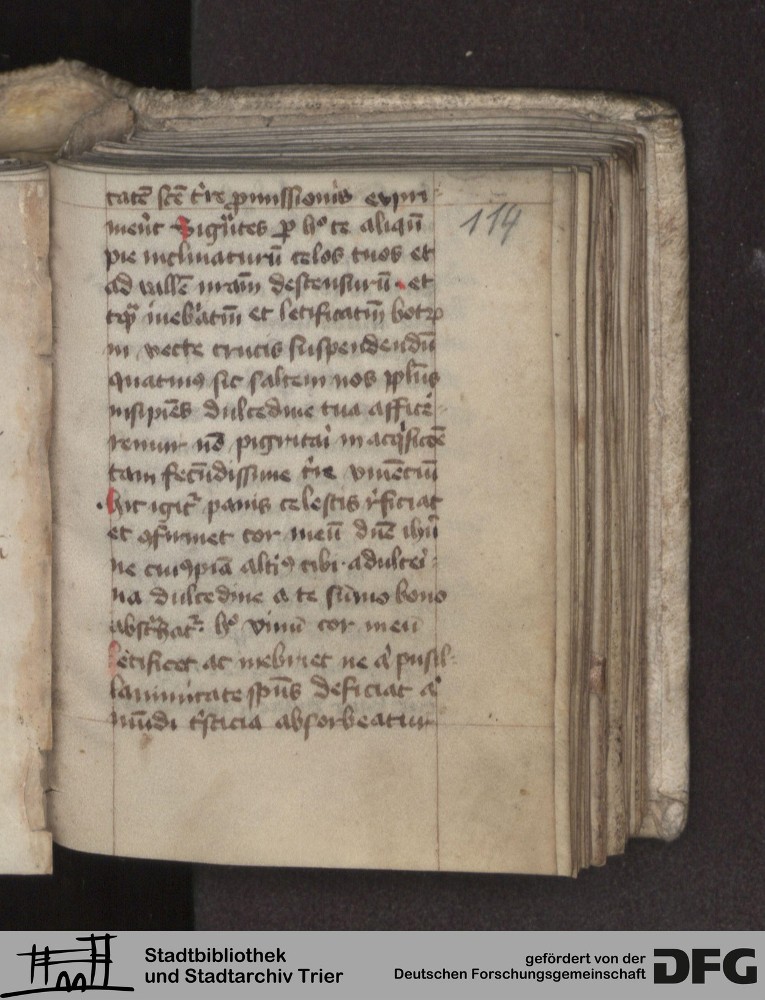 tatē scē t're ꝓmissionis expri-
merēt Sigͥtes ꝑ hͦ te aliqn̄
pie inclinaturū celos tuos et
ad vallē nr̄am descensurū. et
inebͥatiū et letificatiū botrꝰ
in vecte crucis suspendendū
quatinꝰ sic saltem nos ppl̄us
insipiēs dulcedine tua affice-
remur nō pigritai in acqͥsicōe
tam fecūdissime t're viuēciū
hic igitᷣ panis celestis rͤficiat
et ꝯfirmet cor meū dn̄e ihū
ne cuiꝰpiā altiꝰ cibi adulteri-
na dulcedine a te sūmo bono
abstͣhatᷣ. hͦ vinū cor meū
letificet ac inebriet ne aͥ pusil-
lanimitate spūs deficiat aͥ
mūdi tͥsticia absorbeatur
114
Stadtbibliothek
und Stadtarchiv Trier
gefördert von der
Deutschen Forschungsgemeinschaft
DFG